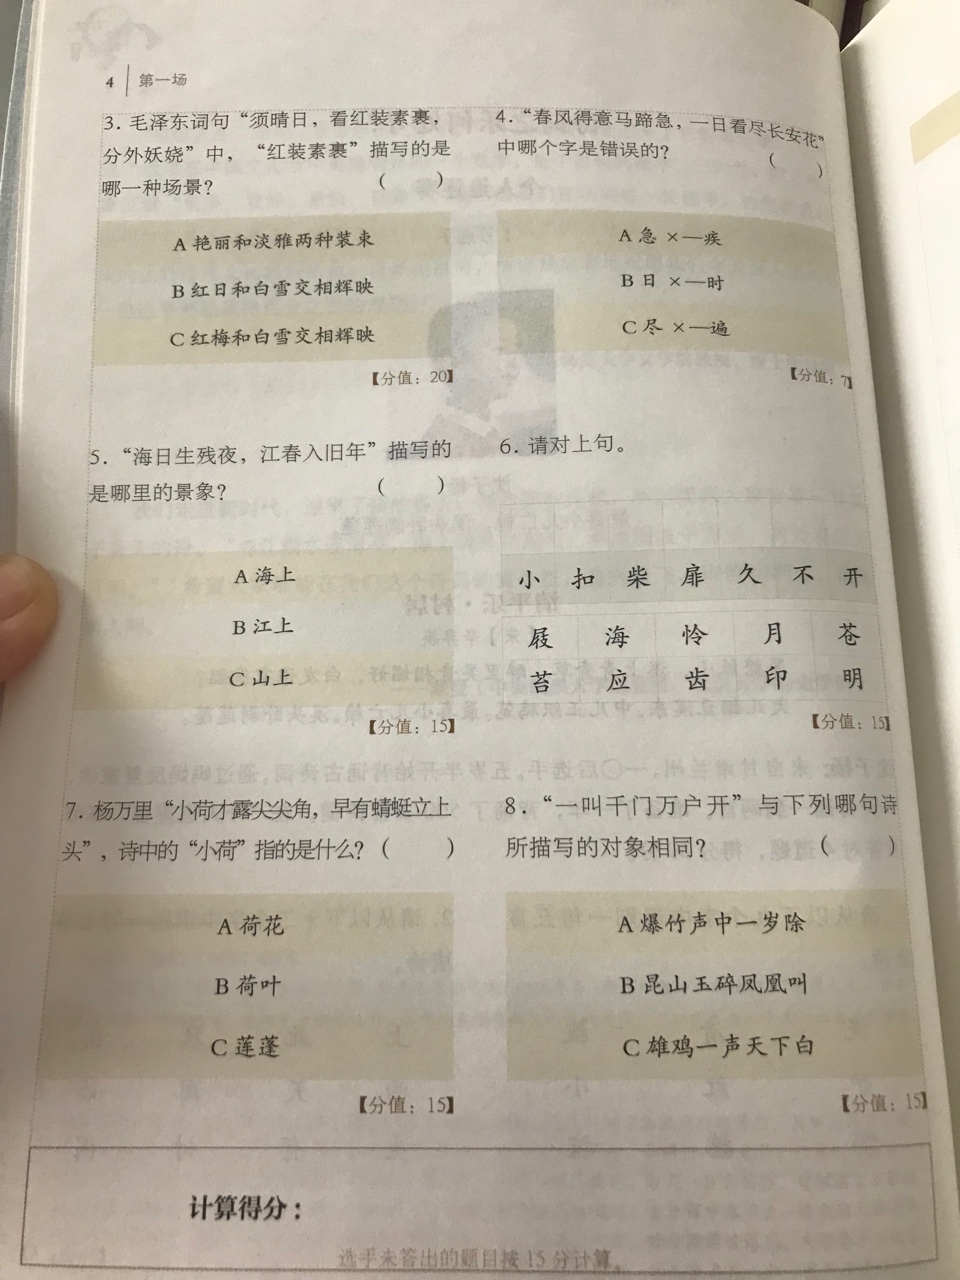 4 第一场
3. 毛泽东词句“须晴日，看红装素裹，
分外妖娆”中，“红装素裹”描写的是
哪一种场景？ （ ）
A 艳丽和淡雅两种装束
B 红日和白雪交相辉映
C 红梅和白雪交相辉映
【分值：20】
4. “春风得意马蹄急，一日看尽长安花”
中哪个字是错误的？ （ ）
A 急 ×—疾
B 日 ×—时
C 尽 ×—遍
【分值：7】
5. “海日生残夜，江春入旧年”描写的
是哪里的景象？ （ ）
A 海上
B 江上
C 山上
【分值：15】
6. 请对上句。
小 扣 柴 扉 久 不 开
屐 海 怜 月 苍
苔 应 齿 印 明
【分值：15】
7. 杨万里“小荷才露尖尖角，早有蜻蜓立上
头”，诗中的“小荷”指的是什么？（ ）
A 荷花
B 荷叶
C 莲蓬
【分值：15】
8. “一叫千门万户开”与下列哪句诗
所描写的对象相同？ （ ）
A 爆竹声中一岁除
B 昆山玉碎凤凰叫
C 雄鸡一声天下白
【分值：15】
计算得分：
选手未答出的题目按 15 分计算。